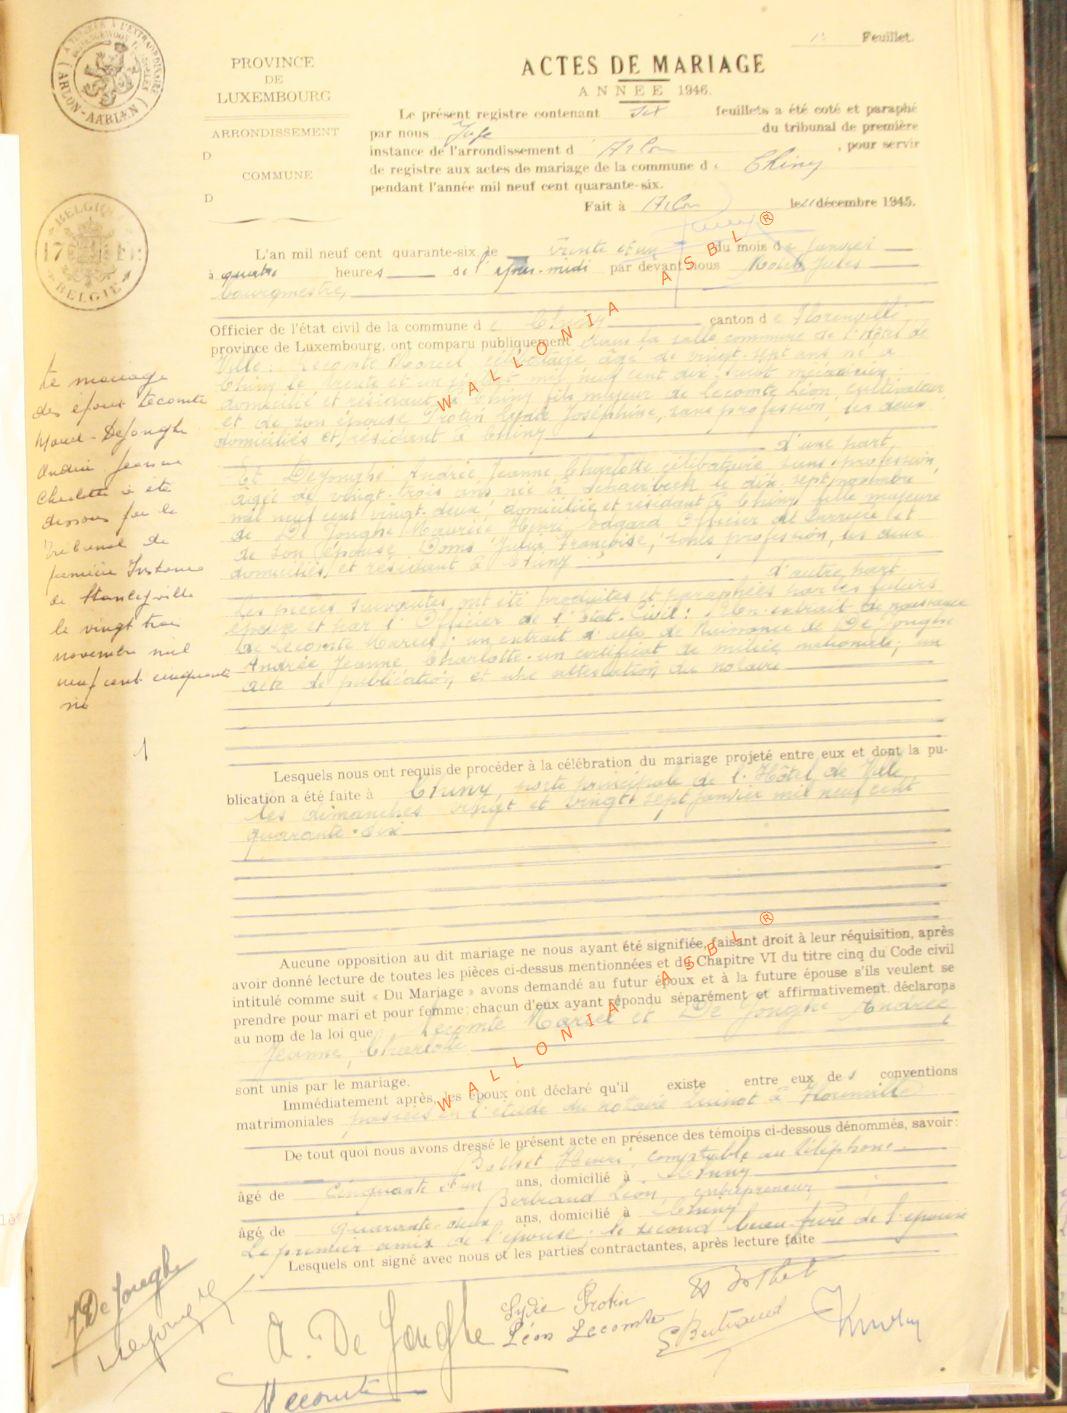 1er Feuillet.
PROVINCE
DE
LUXEMBOURG
ARRONDISSEMENT
D
COMMUNE
D
ARLON-AARLEN
BELGIQUE
BELGIE
ACTES DE MARIAGE
ANNEE 1946.
Le présent registre contenant six feuillets a été coté et paraphé
par nous Juge du tribunal de première
instance de l'arrondissement d Arlon , pour servir
de registre aux actes de mariage de la commune de Chiny
pendant l'année mil neuf cent quarante-six.
Fait à Arlon le décembre 1945.
L'an mil neuf cent quarante-six le trente et un du mois de janvier
à quatre heures de l'après-midi par devant nous Jules
bourgmestre,
Officier de l'état civil de la commune de Chiny canton de Florenville
province de Luxembourg, ont comparu publiquement dans la salle commune de l'Hôtel de
Ville: Lecomte Marcel célibataire âgé de vingt-sept ans né à
Chiny le trente et un mil neuf cent dix-huit
domicilié et résidant à Chiny fils majeur de Lecomte Léon, cultivateur
et de son épouse Protin Lydie Joséphine, sans profession, les deux
domiciliés et résidant à Chiny
d'une part
Et De Jonghe Andrée, Jeanne, Charlotte célibataire sans profession,
âgée de vingt-trois ans née à Schaerbeek le dix-sept novembre
mil neuf cent vingt-deux, domiciliée et résidant à Chiny fille majeure
de De Jonghe Maurice Henri Edgard Officier de et
de son épouse Coms Julia Françoise, sans profession, les deux
domiciliés et résidant à Chiny
d'autre part
Les pièces suivantes ont été produites et paraphées par les futurs
époux et par l'Officier de l'Etat-Civil: Un extrait de naissance
de Lecomte Marcel; un extrait d'acte de Naissance de De Jonghe
Andrée Jeanne, Charlotte. un certificat de milice nationale; un
acte de publication, et une attestation du notaire
Le mariage
des époux Lecomte
Marcel - De Jonghe
Andrée Jeanne
Charlotte a été
dissous par le
Tribunal de
première Instance
de
le vingt trois
novembre mil
neuf cent cinquante
six
Lesquels nous ont requis de procéder à la célébration du mariage projeté entre eux et dont la pu-
blication a été faite à Chiny, porte principale de l'Hôtel de Ville
les dimanches vingt et vingt-sept janvier mil neuf cent
quarante-six
Aucune opposition au dit mariage ne nous ayant été signifiée, faisant droit à leur réquisition, après
avoir donné lecture de toutes les pièces ci-dessus mentionnées et du Chapitre VI du titre cinq du Code civil
intitulé comme suit « Du Mariage » avons demandé au futur époux et à la future épouse s'ils veulent se
prendre pour mari et pour femme; chacun d'eux ayant répondu séparément et affirmativement, déclarons
au nom de la loi que Lecomte Marcel et De Jonghe Andrée,
Jeanne, Charlotte
sont unis par le mariage.
Immédiatement après, les époux ont déclaré qu'il existe entre eux des conventions
matrimoniales passées en l'étude du notaire à Florenville
De tout quoi nous avons dressé le présent acte en présence des témoins ci-dessous dénommés, savoir:
Bothet Henri, comptable au téléphone
âgé de cinquante et un ans, domicilié à Chiny
Bertrand Léon, entrepreneur
âgé de quarante-deux ans, domicilié à Chiny
Le premier amis de l'épouse; le second beau-frère de l'épouse
Lesquels ont signé avec nous et les parties contractantes, après lecture faite
De Jonghe
A. De Jonghe
Lydie Protin
Léon Lecomte
Bothet
Bertrand
M Lecomte
WALLONIA ASBL ®
WALLONIA ASBL ®